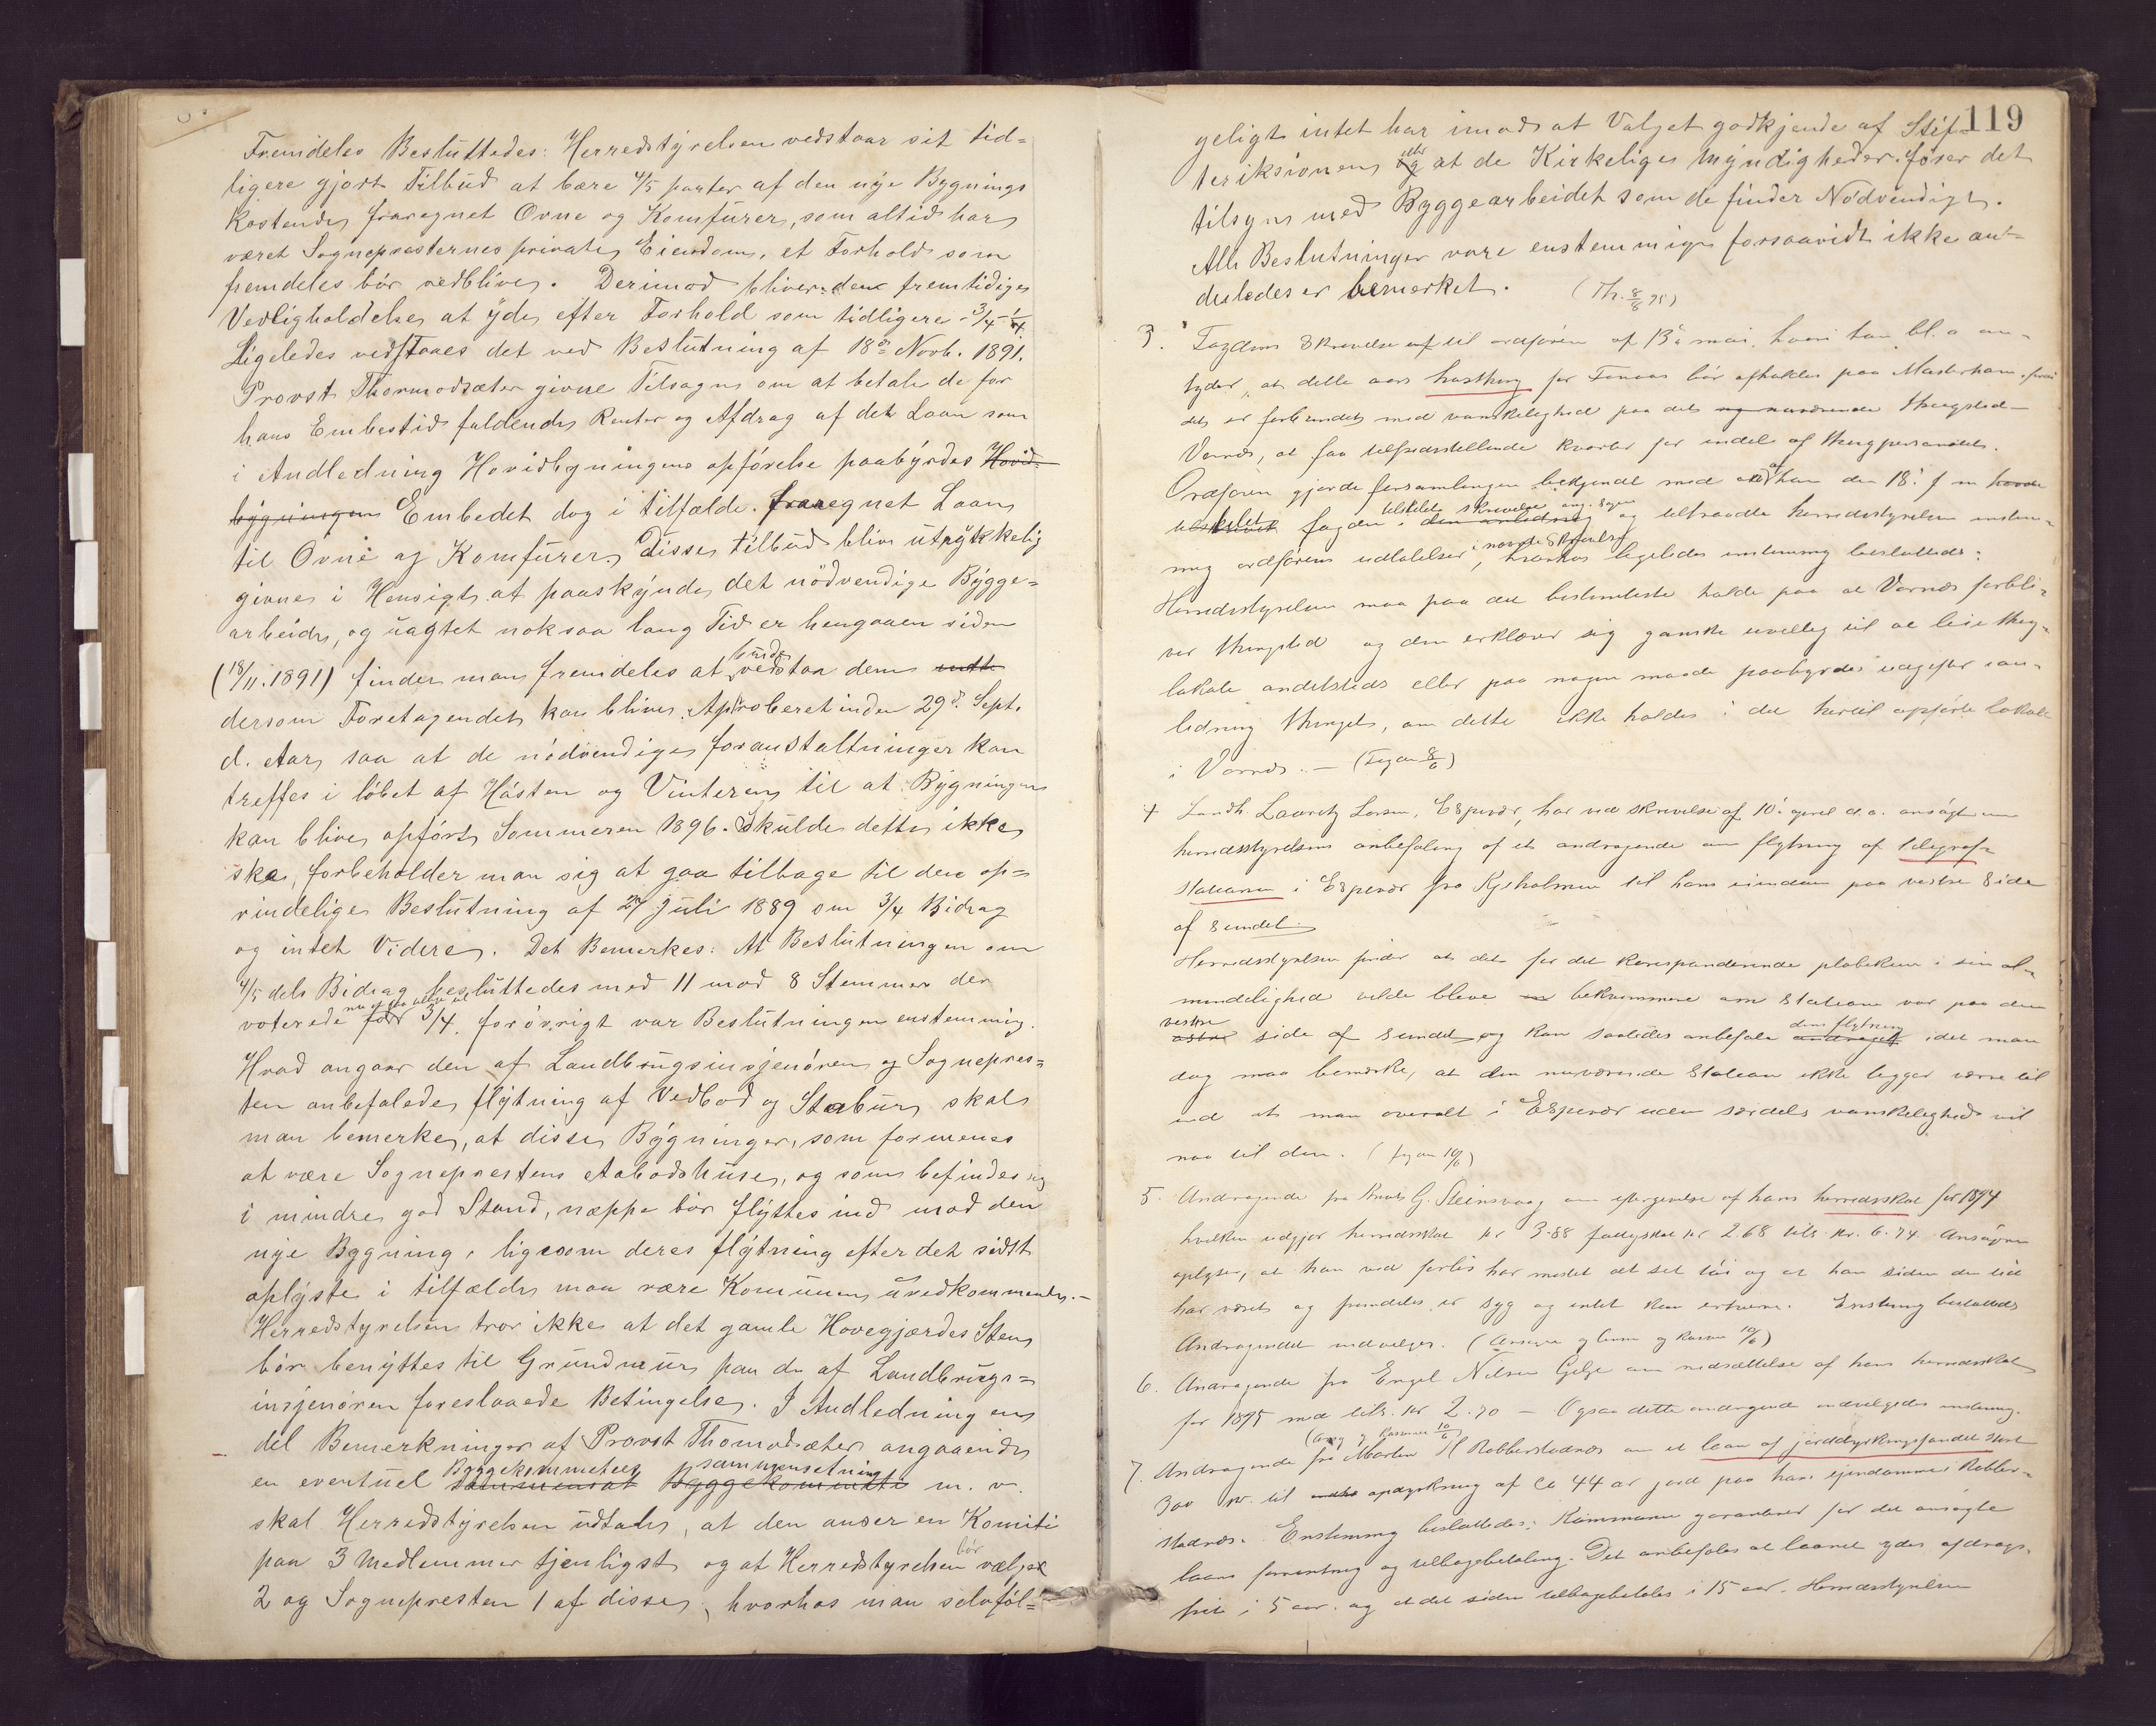 Fremdeles Besluttedes: Herredstyrelsen vedstaar sit tid=
ligere gjort Tilbud at bære 4/5 parter af den nye Bygnings
kostende, fraregnet Ovne og Komfurer, som altid har
været Sognepresternes private Eiendom, et Forhold som
fremdeles bør vedblive. Derimod bliver den fremtidige
Vedligholdelse at yde efter Forhold som tidligere - 3/4 - 1/4.
Ligeledes vedstaaes det ved Beslutning af 18de Novb. 1891.
Provst Thormodsæter givne Tilsagn om at betale de for
hans Embedstid faldende Renter og Afdrag af det Laan som
i Andledning Hovidbygningens opførelse paabyrdes Hovid-
bygningen Embedet dog i tilfælde fraregnet Laan
til Ovne og Komfurer. Disse tilbud blive utrykkelig
givne i Hensigt at paaskynde det nødvendige Bygge=
arbeide, og uagtet noksaa lang Tid er hengaaen siden
(18/11.1891) finder man fremdeles at burde vedstaa dem
dersom Foretagendet kan blive Approberet inden 29de Sept.
d. Aar, saa at de nødvendige foranstaltninger kan
treffes i løbet af Høsten og Vinteren til at Bygningen
kan blive opført Sommeren 1896. Skulde dette ikke
ske, forbeholder man sig at gaa tilbage til den op=
rindelige Beslutning af 27 juli 1889 om 3/4 Bidrag
og intet Videre. Det Bemerkes: At Beslutningen om
4/5 dels Bidrag besluttedes med 11 mod 8 Stemmer der
voterede for 3/4. forøvrigt var Beslutningen enstemmig.
Hvad angaar den af Landbrugsinsjenøren og Sognepres=
ten anbefalede flytning af Vedbod og Stabur, skal
man bemerke, at disse Bygninger, som formenes
at være Sogneprestens Aabodshuse, og som befindes sig
i mindre god Stand, næppe bør flyttes ind mod den
nye Bygning, ligesom deres flytning efter det sidst
oplyste i tilfælde maa være Komunen uvedkommende. -
Herredstyrelsen tror ikke at det gamle Hovegjærdes Sten
bør benyttes til Grundmur paa de af Landbrugs=
insjenøren foreslaaede Betingelse. I Andledning en
del Bemerkninger af Provst Thomodsæter angaaende
en eventuel sammensat Byggekommitees Byggekommitti sammensetning m. v.
skal Herredstyrelsen udtale, at den anser en Komiti
paa 3 Medlemmer tjenligst og at Herredstyrelsen bør vælge
2 og Sognepresten 1 af disse, hvorhos man selvføl=
119
geligt intet har imod at Valget godkjende af Stif=
teriksionen og eller at de Kirkelige Myndigheder føser det
tilsyn med Byggearbeidet som de finder Nødvendigt.
Alle Beslutninger vare enstemmige forsaavidt ikke an=
derledes er bemerket. (Th. 8/6 95)
3. Fogdens Skrivelse til ordføren af 13de mai, hvori han bl. a an-
tyder, at dette aars høstthing for Finaas bør afholdes paa Mosterhavn, fordi
det er forbundet med vanskelighed paa det nuværende thingsted
Vornes, at faa tilfredsstillende kvarter for endel af thingpersonalet.
Ordføren gjorde forsamlingen bekjendt med af han den 18de f m havde
tilskrevet fogden i den anledning tilstilet skrivelse ang. sagen og tiltraadte herredsstyrelsen enstem-
mig ordførens udtalelser i nævnte skrivelse, hvorhos ligeledes enstemmig besluttedes:
Herredsstyrelsen maa paa det bestemteste holde paa at Vornes forbli-
ver thingsted og den erklærer sig ganske uvillig til at leie thing-
lokale andetsteds eller paa nogen maade paabyrdes udgifter i an-
ledning thinget, om dette ikke holdes i det hertil opførte lokale
i Vornes. - (Fogden 8/6)
4 Landh. Lauritz Larsen, Espevær, har ved skrivelse af 10de april d.a. ansøgt om
herredsstyrelsens anbefaling af et andragende om flytning af telegraf-
stationen i Espevær fra Kjeholmen til hans eiendom paa vestre side
af sundet.
Herredsstyrelsen finder at det for det korespanderende publikum i sin al-
mindelighed vilde blive bekvemmere om stationen var paa den
vestre østre side af sundet og kan saaledes anbefale dens flytning andraget, idet man
dog maa bemærke, at den nuværende station ikke ligger værre til
end at man overalt i Espevær uden særdeles vanskelighed vil
naa til den. (fogden 10/6)
5. Andragende fra Knut G. Steinsvaag om eftergivelse af hans herredsskat for 1894
hvilken udgjør herredsskat kr 3.88 fattigskat kr 2.68 tils. kr. 6.74. Ansøgeren
oplyser, at han ved forlis har mistet alt sit tøi og at han siden den tid
har været og fremdeles er syg og intet kan erhverve. Enstemmig besluttedes
Andragendet indvilges. (Ansøgeren og Kasserer 10/6)
6. Andragende fra Engel Nilsen Gilje om nedsættelse af hans herredsskat
for 1895 med tils. kr 2.70 - Ogsaa dette andragende indvilgedes enstemmig.
(Ansøg og Kasserer 10/6)
7. Andragende fra Marten H Robberstadnes om et laan af jorddyrkningsfondet stort
300 kr. til opdyrkning af ca 44 ar jord paa hans eiendomme i Robber-
stadnes. Enstemmig besluttedes: Kommunen garanterer for det ansøgte
laans forrentning og tilbagebetaling. Det anbefales at laanet ydes afdrags-
frit i 5 aar og at det siden tilbagebetales i 15 aar. Herredsstyrelsen